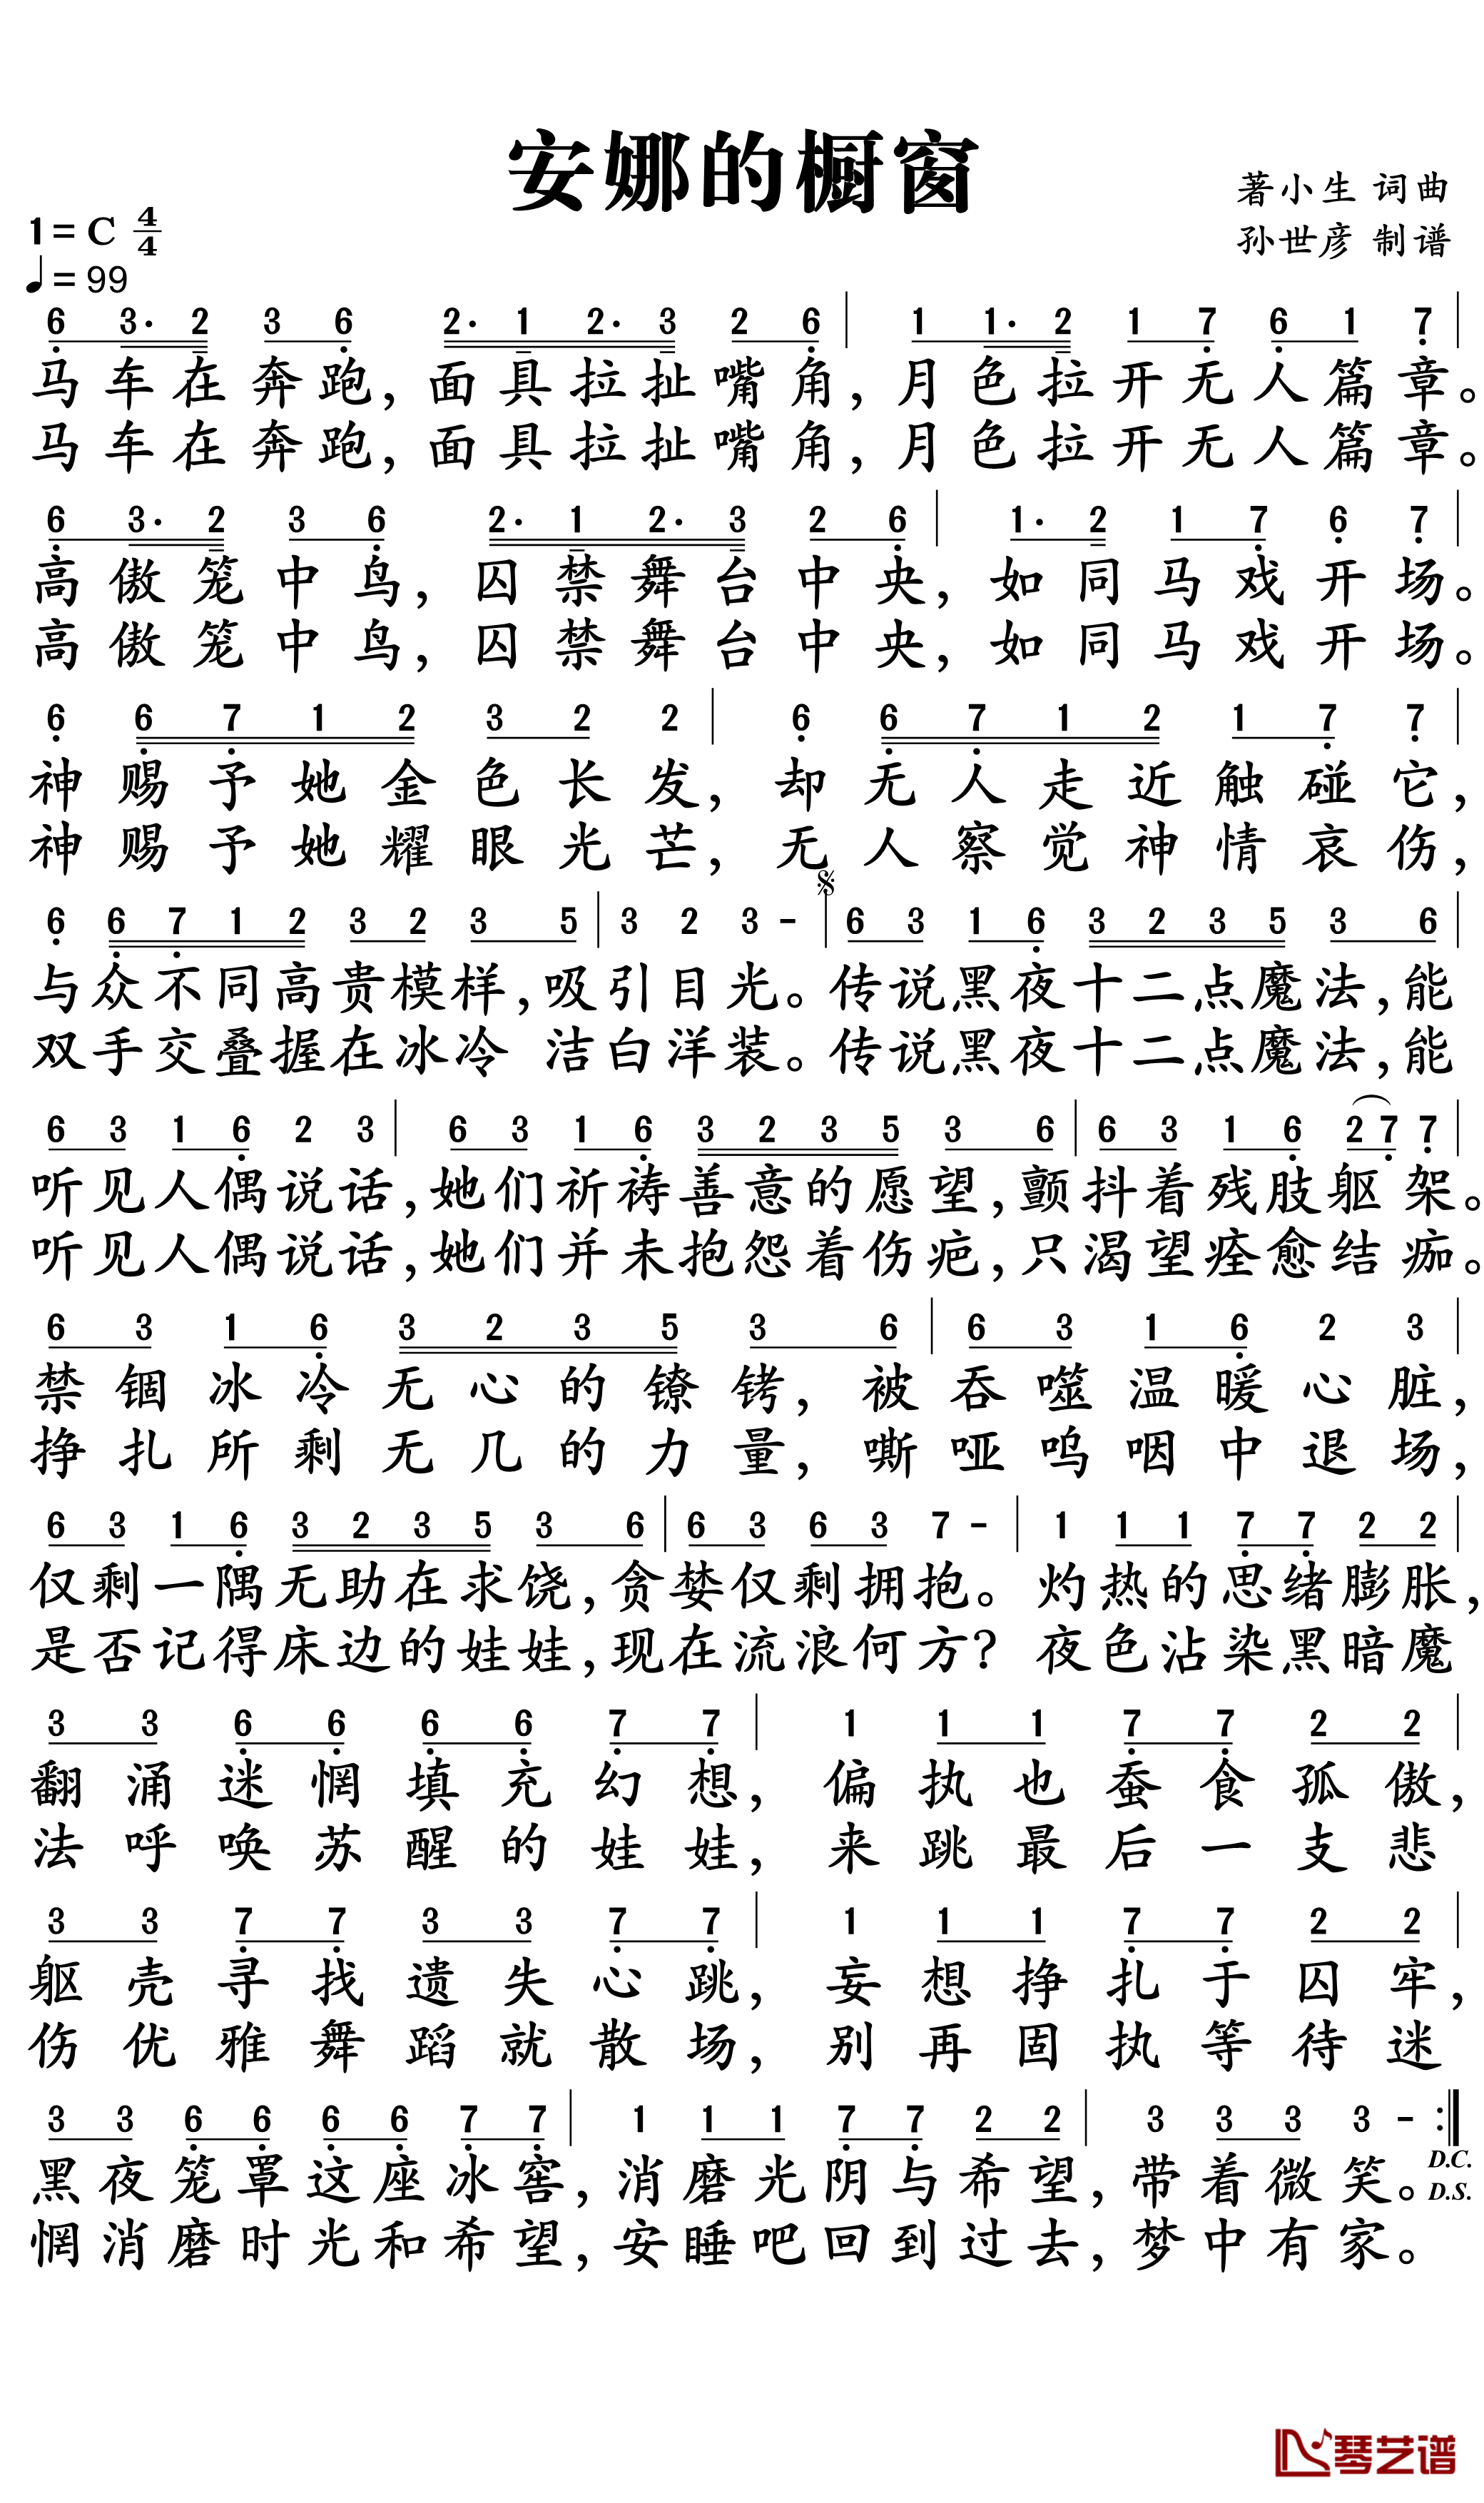 安娜的橱窗
著小生 词曲
孙世彦 制谱
1= C 4/4
♩= 99
6 3· 2 3 6 2· 1 2· 3 2 6 | 1 1· 2 1 7 6 1 7 |
马车在奔跑，面具拉扯嘴角，月色拉开无人篇章。
马车在奔跑，面具拉扯嘴角，月色拉开无人篇章。
6 3· 2 3 6 2· 1 2· 3 2 6 | 1· 2 1 7 6 7 |
高傲笼中鸟，囚禁舞台中央，如同马戏开场。
高傲笼中鸟，囚禁舞台中央，如同马戏开场。
6 6 7 1 2 3 2 2 | 6 6 7 1 2 1 7 7 |
神赐予她金色长发，却无人走近触碰它，
神赐予她耀眼光芒，无人察觉神情哀伤，
6 6 7 1 2 3 2 3 5 | 3 2 3 - | 6 3 1 6 3 2 3 5 3 6 |
与众不同高贵模样，吸引目光。传说黑夜十二点魔法，能
双手交叠握在冰冷 洁白洋装。传说黑夜十二点魔法，能
6 3 1 6 2 3 | 6 3 1 6 3 2 3 5 3 6 | 6 3 1 6 2 7 7 |
听见人偶说话，她们祈祷善意的愿望，颤抖着残肢躯架。
听见人偶说话，她们并未抱怨着伤疤，只渴望痊愈结痂。
6 3 1 6 3 2 3 5 3 6 | 6 3 1 6 2 3 |
禁锢冰冷无心的镣铐，被吞噬温暖心脏，
挣扎所剩无几的力量，嘶哑呜咽中退场，
6 3 1 6 3 2 3 5 3 6 | 6 3 6 3 7 - | 1 1 1 7 7 2 2 |
仅剩一隅无助在求饶，贪婪仅剩拥抱。灼热的思绪膨胀，
是否记得床边的娃娃，现在流浪何方？夜色沾染黑暗魔
3 3 6 6 6 6 7 7 | 1 1 1 7 7 2 2 |
翻涌迷惘填充幻想，偏执也蚕食孤傲，
法呼唤苏醒的娃娃，来跳最后一支悲
3 3 7 7 3 3 7 7 | 1 1 1 7 7 2 2 |
躯壳寻找遗失心跳，妄想挣扎于囚牢，
伤优雅舞蹈就散场，别再固执等待迷
3 3 6 6 6 6 7 7 | 1 1 1 7 7 2 2 | 3 3 3 3 - :|
黑夜笼罩这座冰窖，消磨光阴与希望，带着微笑。D.C.
D.S.
惘消磨时光和希望，安睡吧回到过去，梦中有家。
琴艺谱